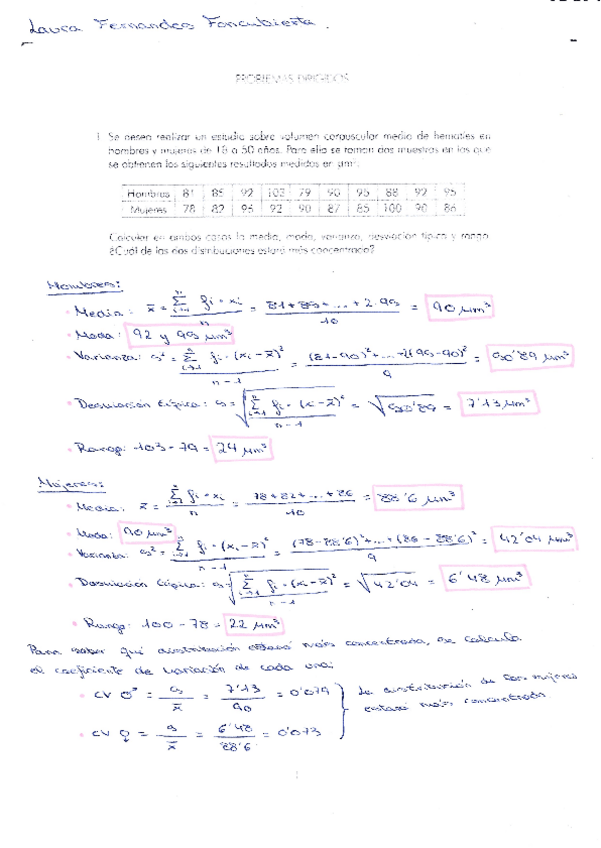 Laura Fernandes Foncubierta.
PROBLEMAS DIRIGIDOS
1. Se desea realizar un estudio sobre volumen corpuscular medio de hematíes en
hombres y mujeres de 18 a 50 años. Para ello se toman dos muestras en las que
se obtienen los siguientes resultados medidos en µm³:
Hombres 81 85 92 103 79 90 95 88 92 95
Mujeres 78 82 95 92 90 87 86 100 90 86
Calcular en ambos casos la media, moda, varianza, desviación típica y rango.
¿Cuál de las dos distribuciones estará más concentrada?
Hombres:
• Media: x̄ = Σ fi · xi / n = 81+85+...+2·95 / 10 = 90 µm³
• Moda: 92 y 95 µm³
• Varianza: s² = Σ fi · (xi - x̄)² / n-1 = (81-90)²+...+2(95-90)² / 9 = 50'89 µm³
• Desviación típica: s = √ Σ fi · (xi - x̄)² / n-1 = √50'89 = 7'13 µm³
• Rango: 103 - 79 = 24 µm³
Mujeres:
• Media: x̄ = Σ fi · xi / n = 78+82+...+86 / 10 = 88'6 µm³
• Moda: 90 µm³
• Varianza: s² = Σ fi · (xi - x̄)² / n-1 = (78-88'6)²+...+(86-88'6)² / 9 = 42'04 µm³
• Desviación típica: s = √ Σ fi · (xi - x̄)² / n-1 = √42'04 = 6'48 µm³
• Rango: 100 - 78 = 22 µm³
Para saber qué distribución estará más concentrada, se calcula
el coeficiente de variación de cada una:
• CV ♂ = s / x̄ = 7'13 / 90 = 0'079
La distribución de las mujeres
estará más concentrada
• CV ♀ = s / x̄ = 6'48 / 88'6 = 0'073